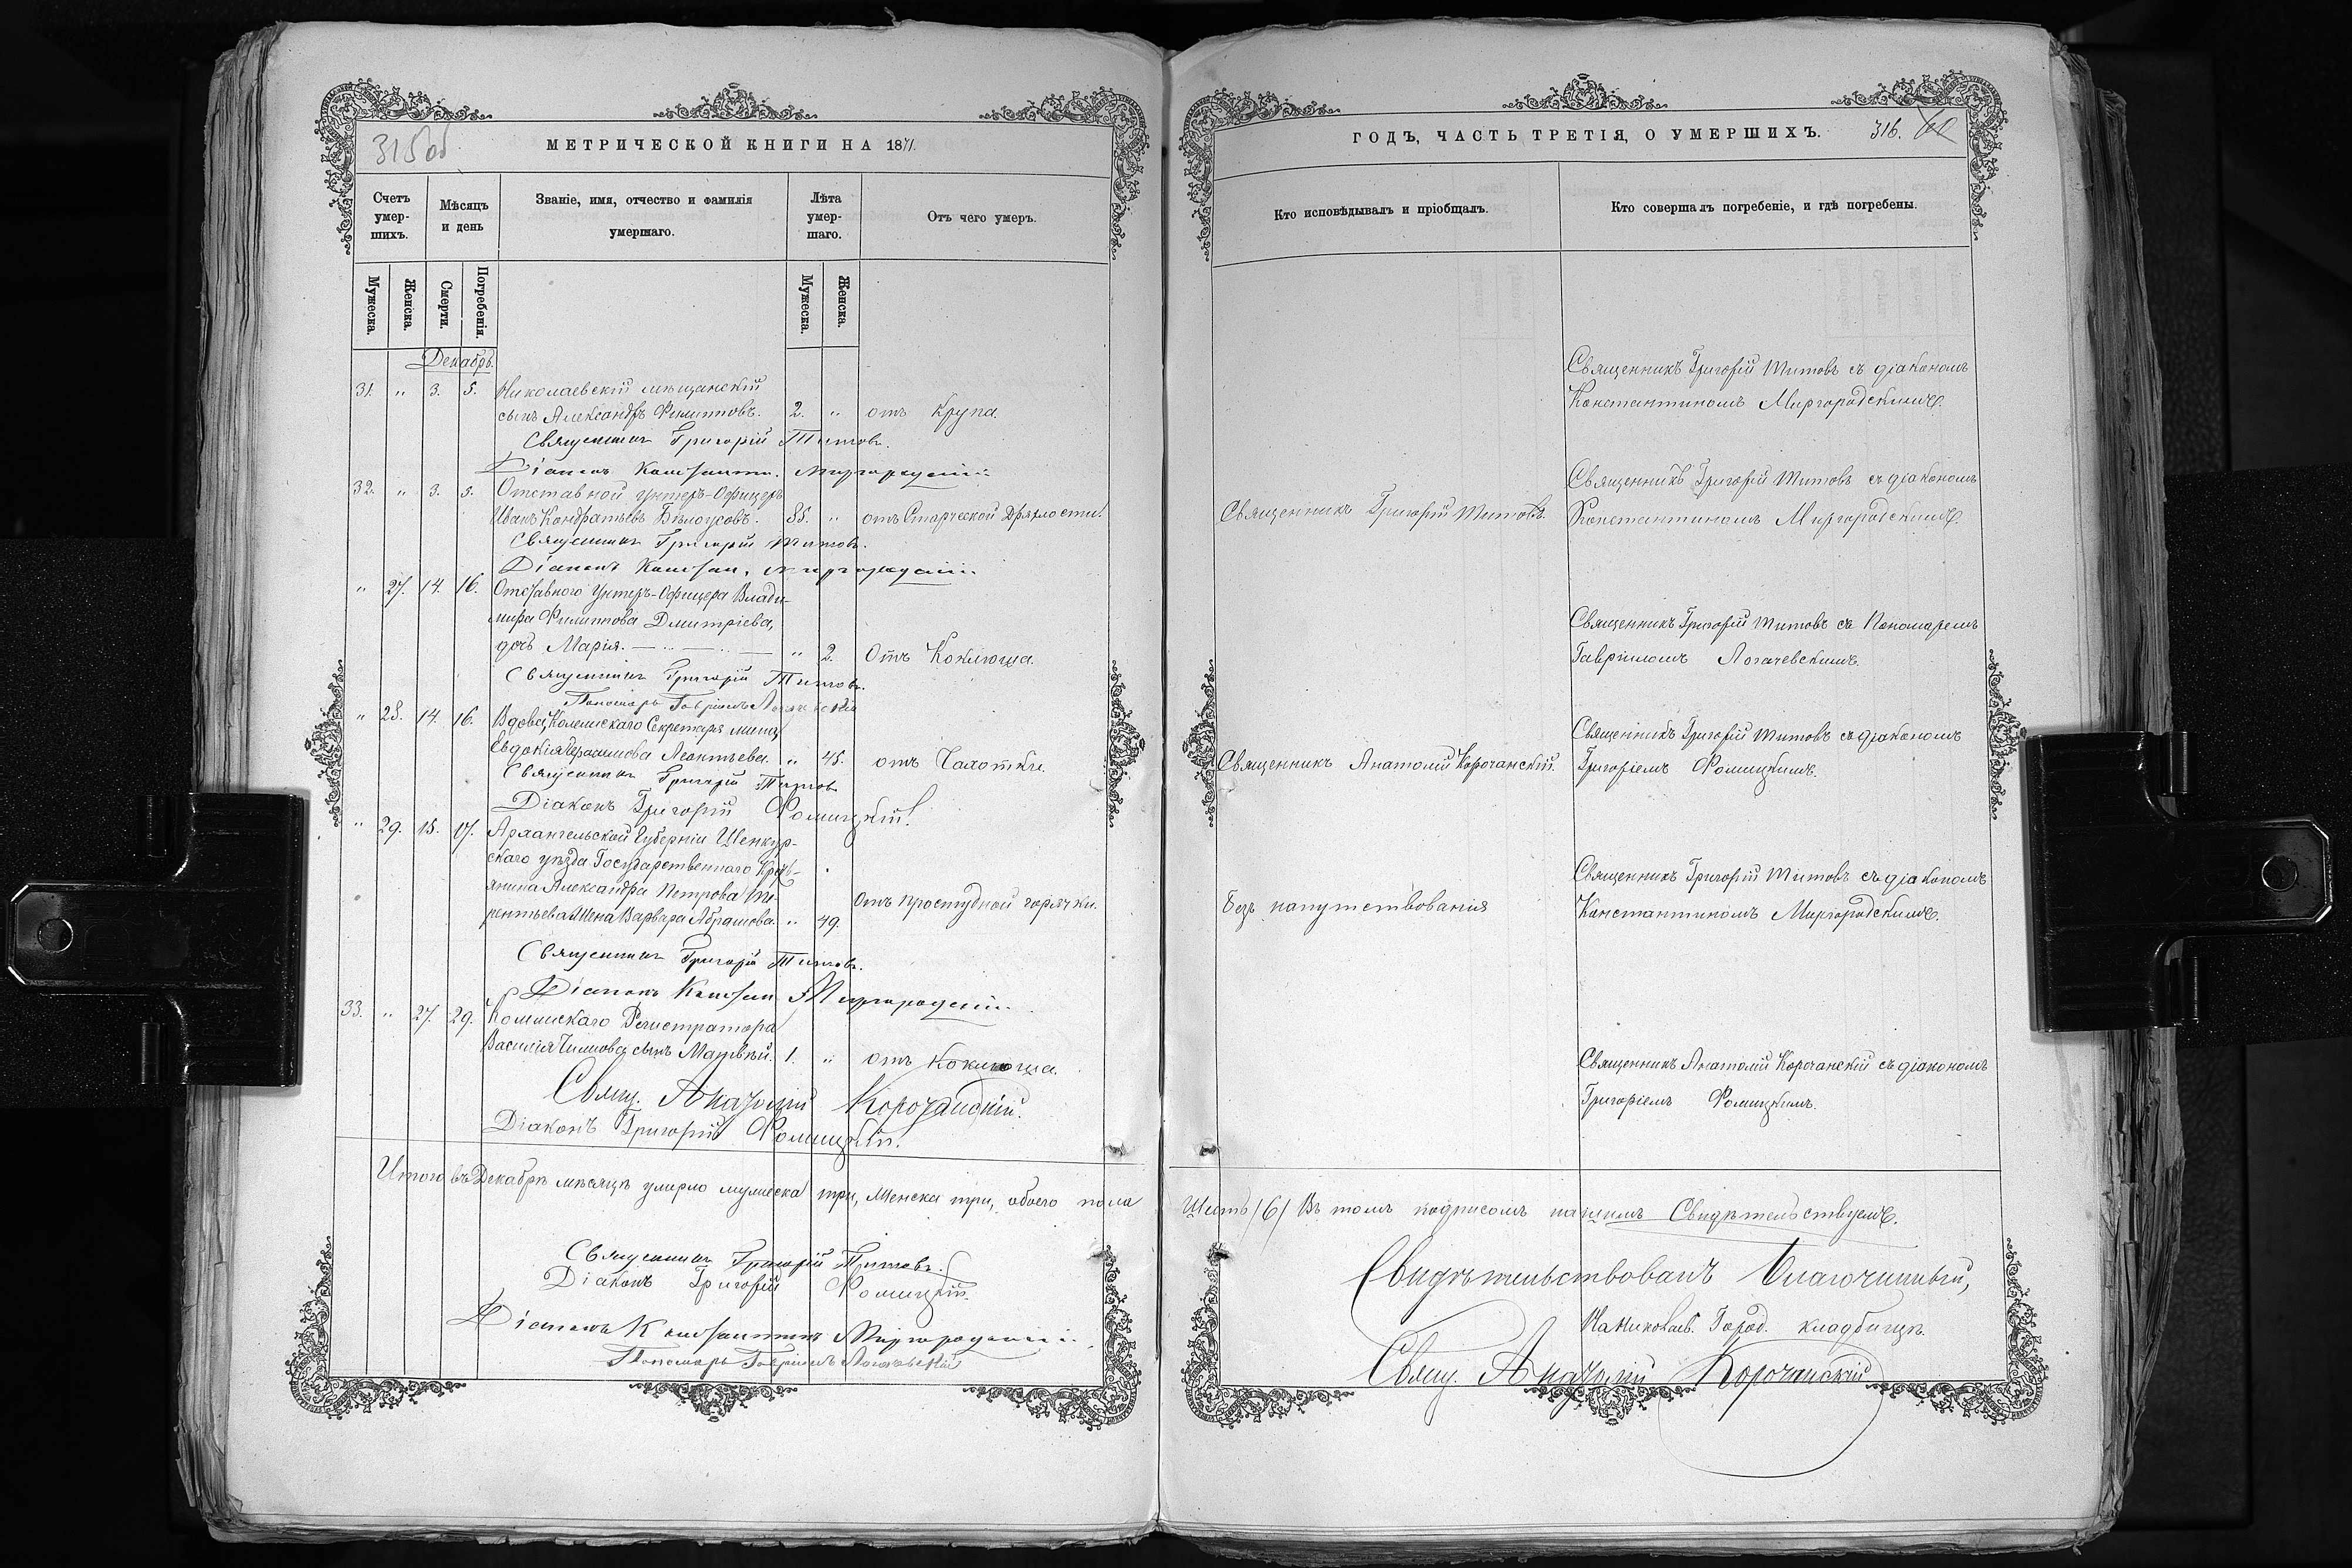 315 об
МЕТРИЧЕСКОЙ КНИГИ НА 1871.
Счетъ умер-шихъ.
Мѣсяцъ и день
Званіе, имя, отчество и фамилія умершаго.
Лѣта умер-шаго.
Отъ чего умеръ.
Мужеска.
Женска.
Смерти.
Погребенія.
Мужеска.
Женска.
Декабрь.
31. „ 3. 5. Николаевскій мѣщанскій
сынъ Александръ Филипповъ. 2. „ отъ Крупа.
Священникъ Григорій Титовъ.
Діаконъ Констант. Миргородскій
32. „ 3. 5. Отставной Унтеръ-Офицеръ
Иванъ Кондратьевъ Бѣлоусовъ. 85. „ отъ Старческой Дряхлости.
Священникъ Григорій Титовъ.
Діаконъ Констан. Миргородскій
„ 27. 14. 16. Отставного Унтеръ-Офицера Влади-
мира Филиппова Дмитріева,
дочь Марія. „ 2. Отъ Коклюша.
Священникъ Григорій Титовъ.
Пономарь Гавріилъ Логачевскій
„ 28. 14. 16. Вдова, Колежскаго Секретаря жена,
Евдокія Леонтьева. „ 45. отъ Чахотки.
Священникъ Григорій Титовъ
Діаконъ Григорій Фомицкій.
„ 29. 15. 17. Архангельской Губерніи Шенкур-
скаго уѣзда Государственнаго Кресть-
янина Александра Петрова Те-
рентьева Жена Варвара Абрамова. „ 49. Отъ простудной горячки.
Священникъ Григорій Титовъ.
Діаконъ Констан Миргородскій
33. „ 27. 29. Колежскаго Регистратора
Василія сынъ Матвѣй. 1. „ отъ Коклюша.
Свящ. Анатолій Корочанскій.
Діаконъ Григорій Фомицкій.
Итого въ Декабрѣ мѣсяцѣ умерло мужеска три, женска три, обоего пола
Священникъ Григорій Титовъ.
Діаконъ Григорій Фомицкій.
Діаконъ Константинъ Миргородскій
Пономарь Гавріилъ Логачевскій
ГОДЪ, ЧАСТЬ ТРЕТІЯ, О УМЕРШИХЪ. 316. 60
Кто исповѣдывалъ и пріобщалъ.
Кто совершалъ погребеніе, и гдѣ погребены.
Священникъ Григорій Титовъ съ діакономъ
Константиномъ Миргородскимъ.
Священникъ Григорій Титовъ съ діакономъ
Священникъ Григорій Титовъ. Константиномъ Миргородскимъ.
Священникъ Григорій Титовъ съ Пономаремъ
Гавріиломъ Логачевскимъ.
Священникъ Григорій Титовъ съ діакономъ
Священникъ Анатолій Корочанскій. Григоріемъ Фомицкимъ.
Священникъ Григорій Титовъ съ діакономъ
Безъ напутствованія Константиномъ Миргородскимъ.
Священникъ Анатолій Корочанскій съ діакономъ
Григоріемъ Фомицкимъ.
Шесть /6/ Въ томъ подписомъ нашимъ Свидѣтельствуемъ.
Свидѣтельствовалъ Благочинный,
Николаев. Город. кладбищъ
Свящ. Анатолій Корочанскій